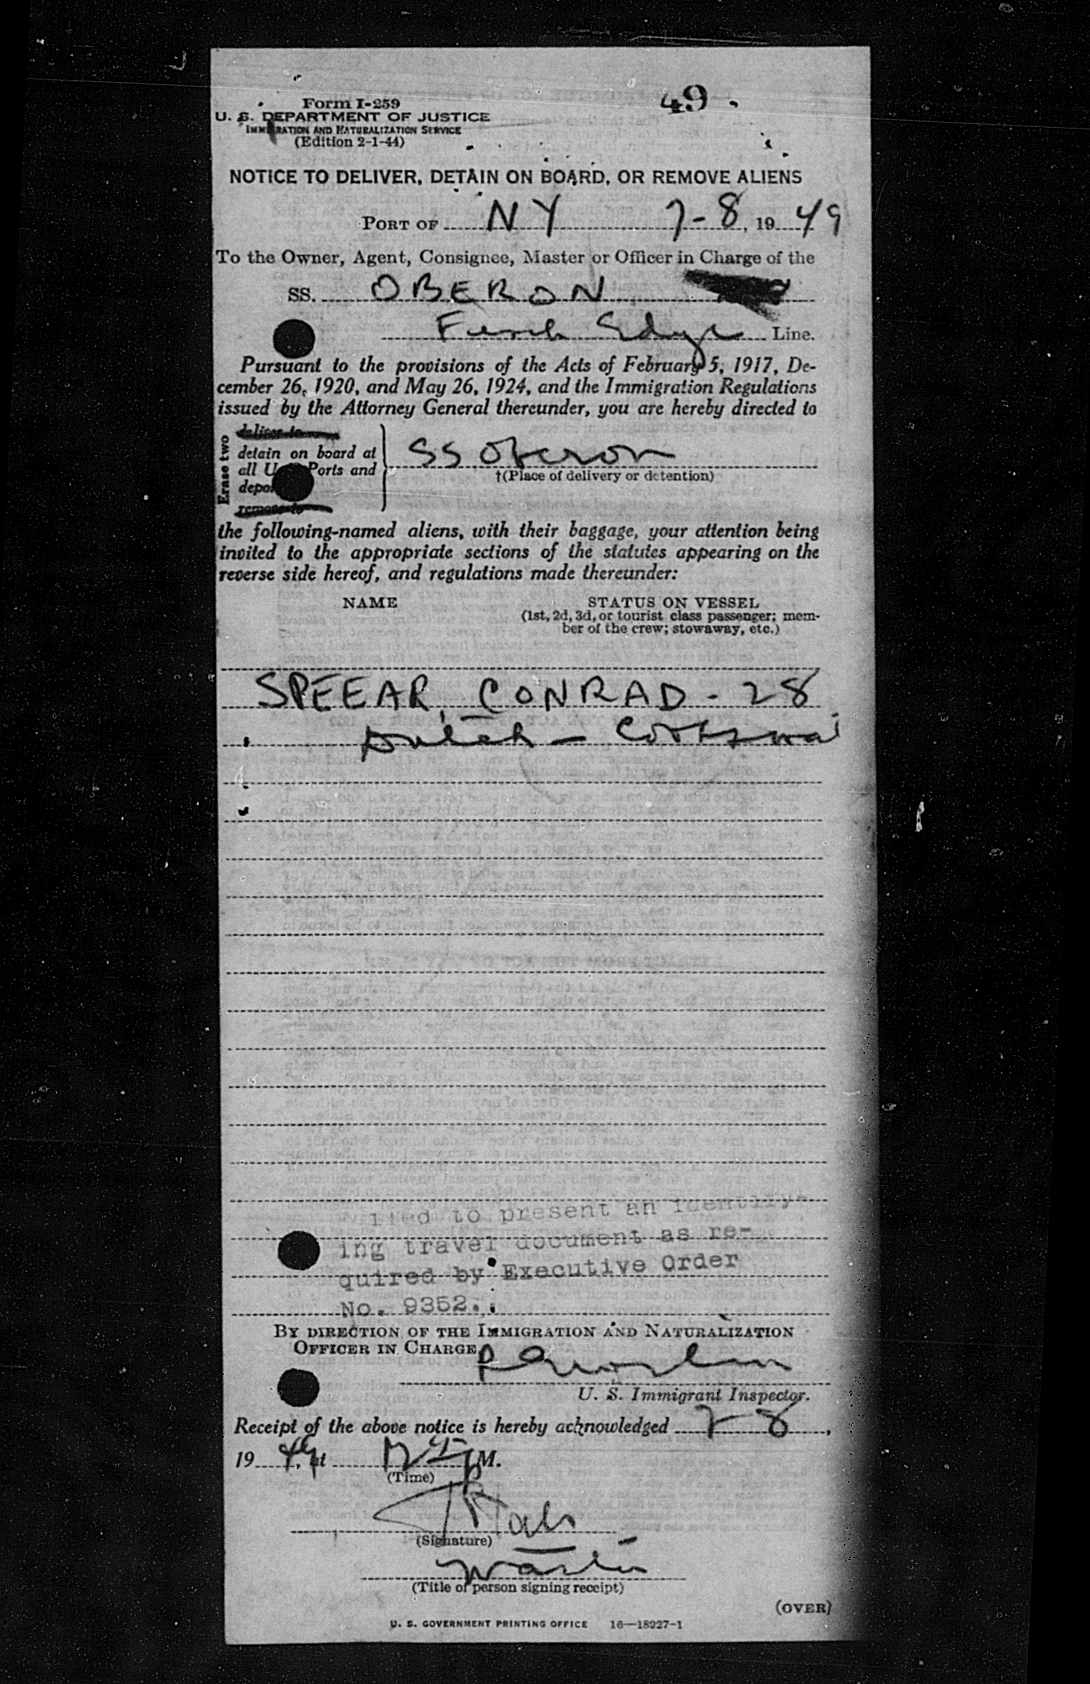 49
Form I-259
U. S. DEPARTMENT OF JUSTICE
IMMIGRATION AND NATURALIZATION SERVICE
(Edition 2-1-44)
NOTICE TO DELIVER, DETAIN ON BOARD, OR REMOVE ALIENS
PORT OF NY 7-8, 19 49
To the Owner, Agent, Consignee, Master or Officer in Charge of the
SS. OBERON
Funch Edye Line.
Pursuant to the provisions of the Acts of February 5, 1917, De-
cember 26, 1920, and May 26, 1924, and the Immigration Regulations
issued by the Attorney General thereunder, you are hereby directed to
Erase two
deliver to
detain on board at
all U. Ports and
depo
remove to
SS Oberon
†(Place of delivery or detention)
the following-named aliens, with their baggage, your attention being
invited to the appropriate sections of the statutes appearing on the
reverse side hereof, and regulations made thereunder:
NAME STATUS ON VESSEL
(1st, 2d, 3d, or tourist class passenger; mem-
ber of the crew; stowaway, etc.)
SPEEAR, CONRAD - 28
Dutch -
iled to present an identify-
ing travel document as re-
quired by Executive Order
No. 9352.
BY DIRECTION OF THE IMMIGRATION AND NATURALIZATION
OFFICER IN CHARGE
U. S. Immigrant Inspector.
Receipt of the above notice is hereby acknowledged 7-8,
19 49, at M.
(Time)
(Signature)
Master
(Title of person signing receipt)
(OVER)
U. S. GOVERNMENT PRINTING OFFICE 16—18927-1